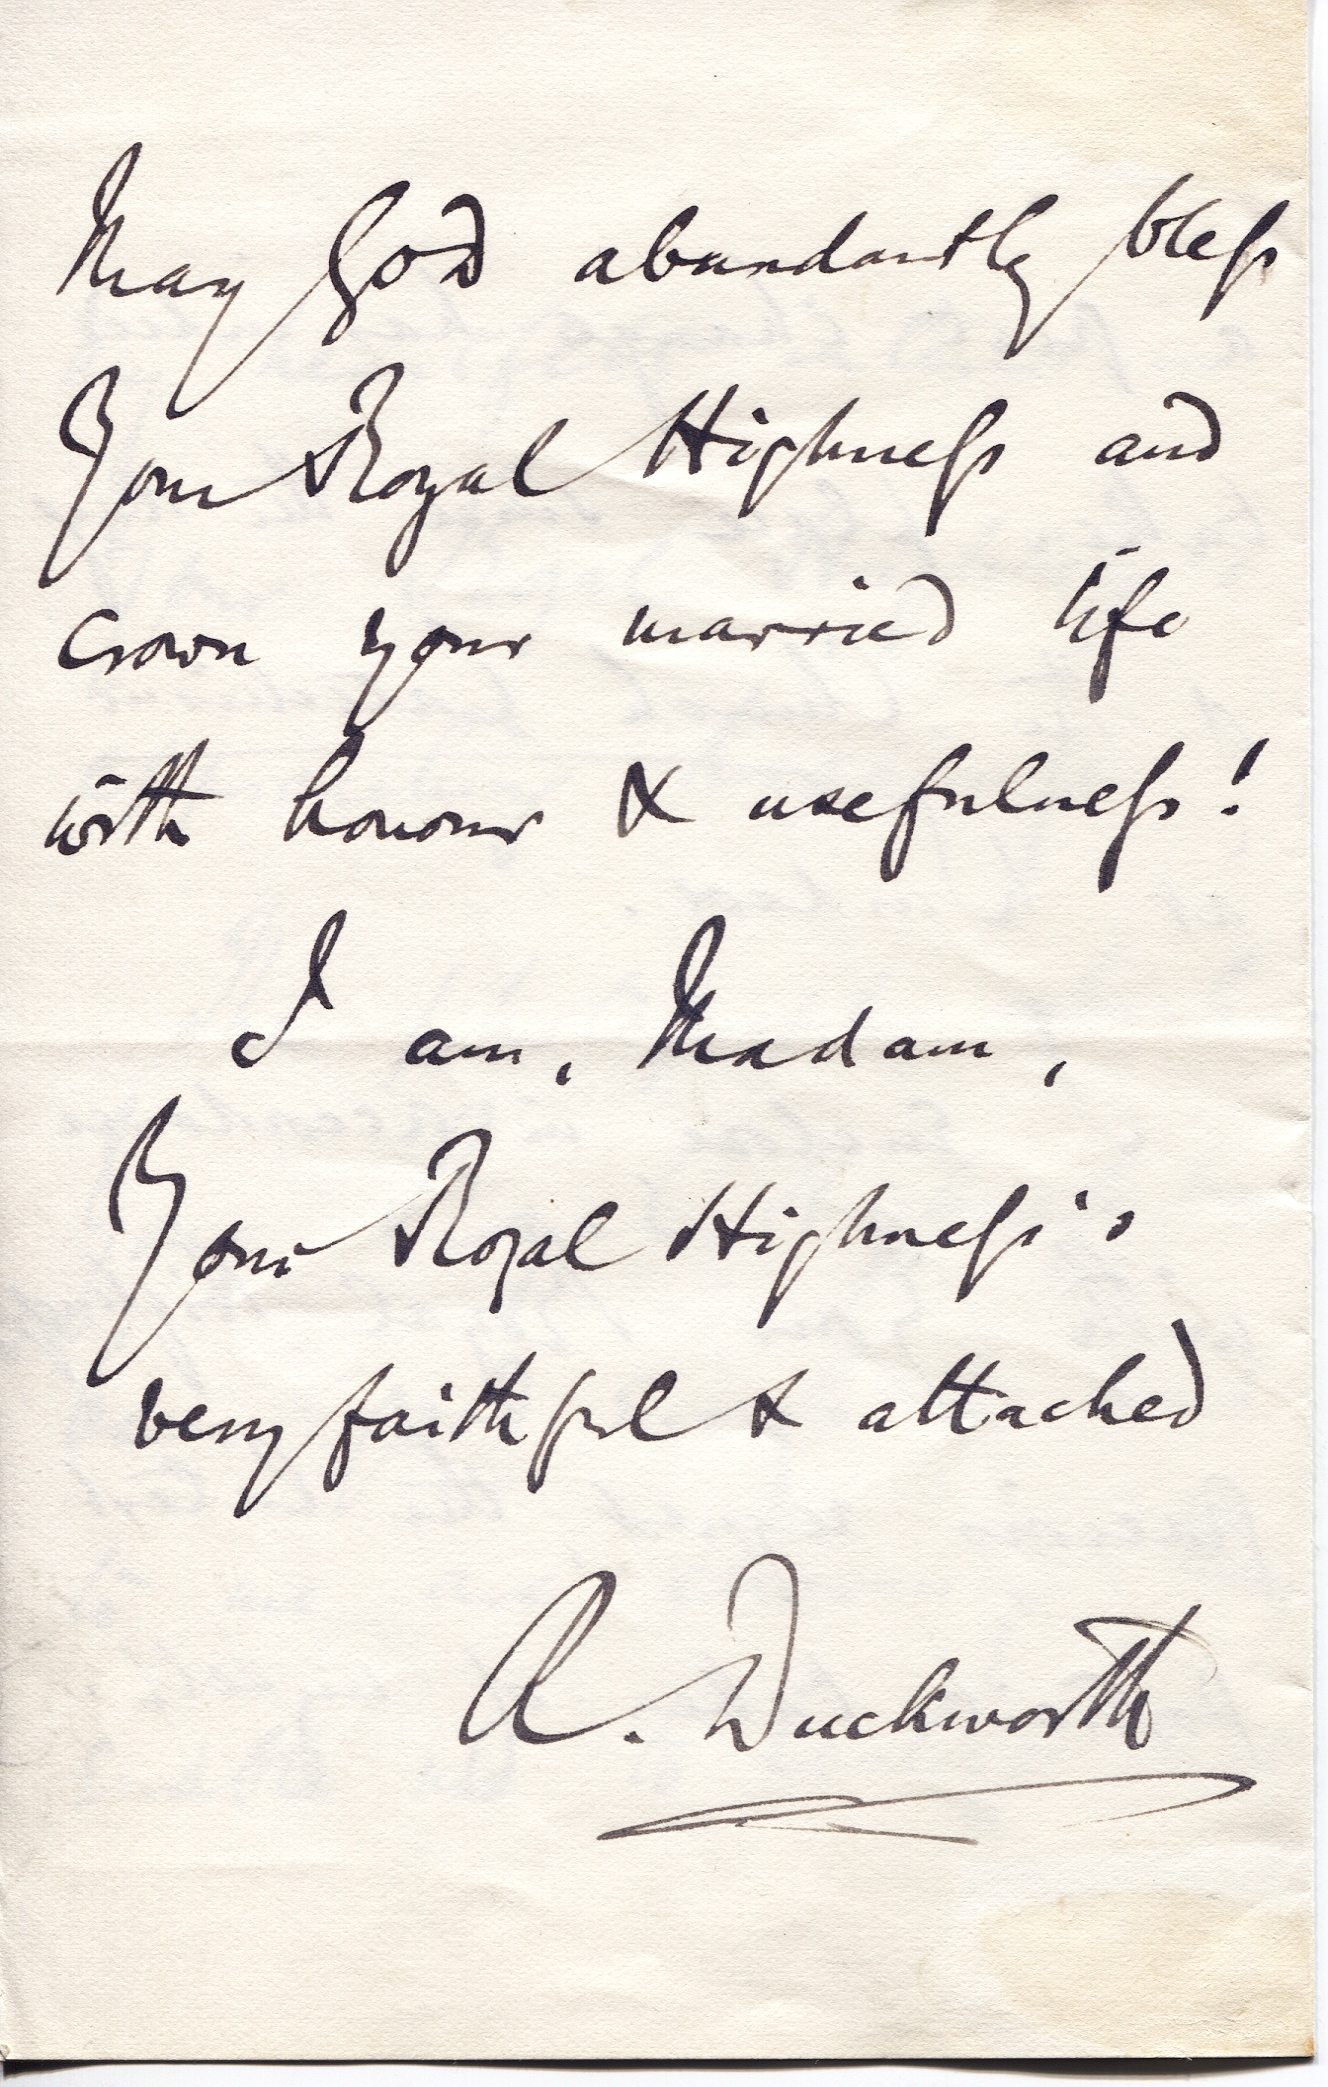 May God abundantly bless
Your Royal Highness and
crown your married life
with honour & usefulness!
I am, Madam,
Your Royal Highness's
very faithful & attached
R. Duckworth